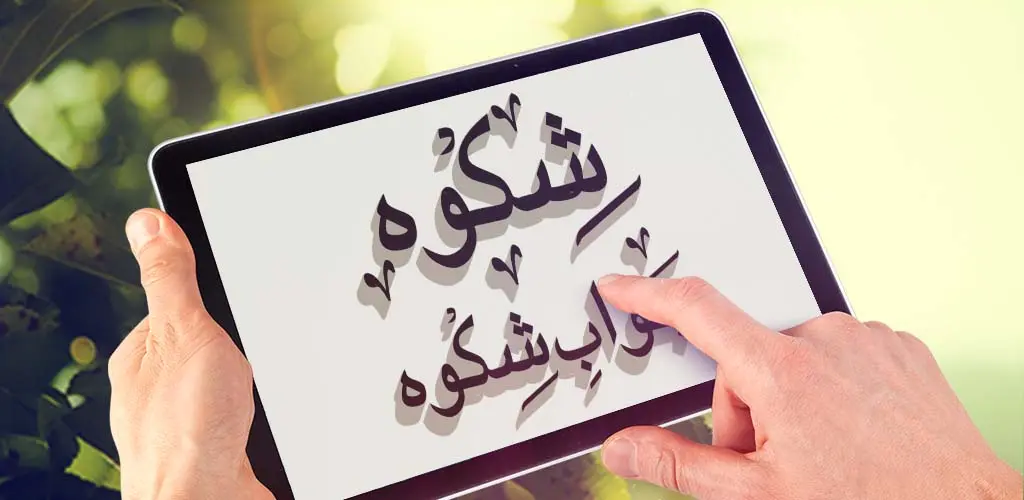 شِکوُہ
جَوابِ شِکوُہ